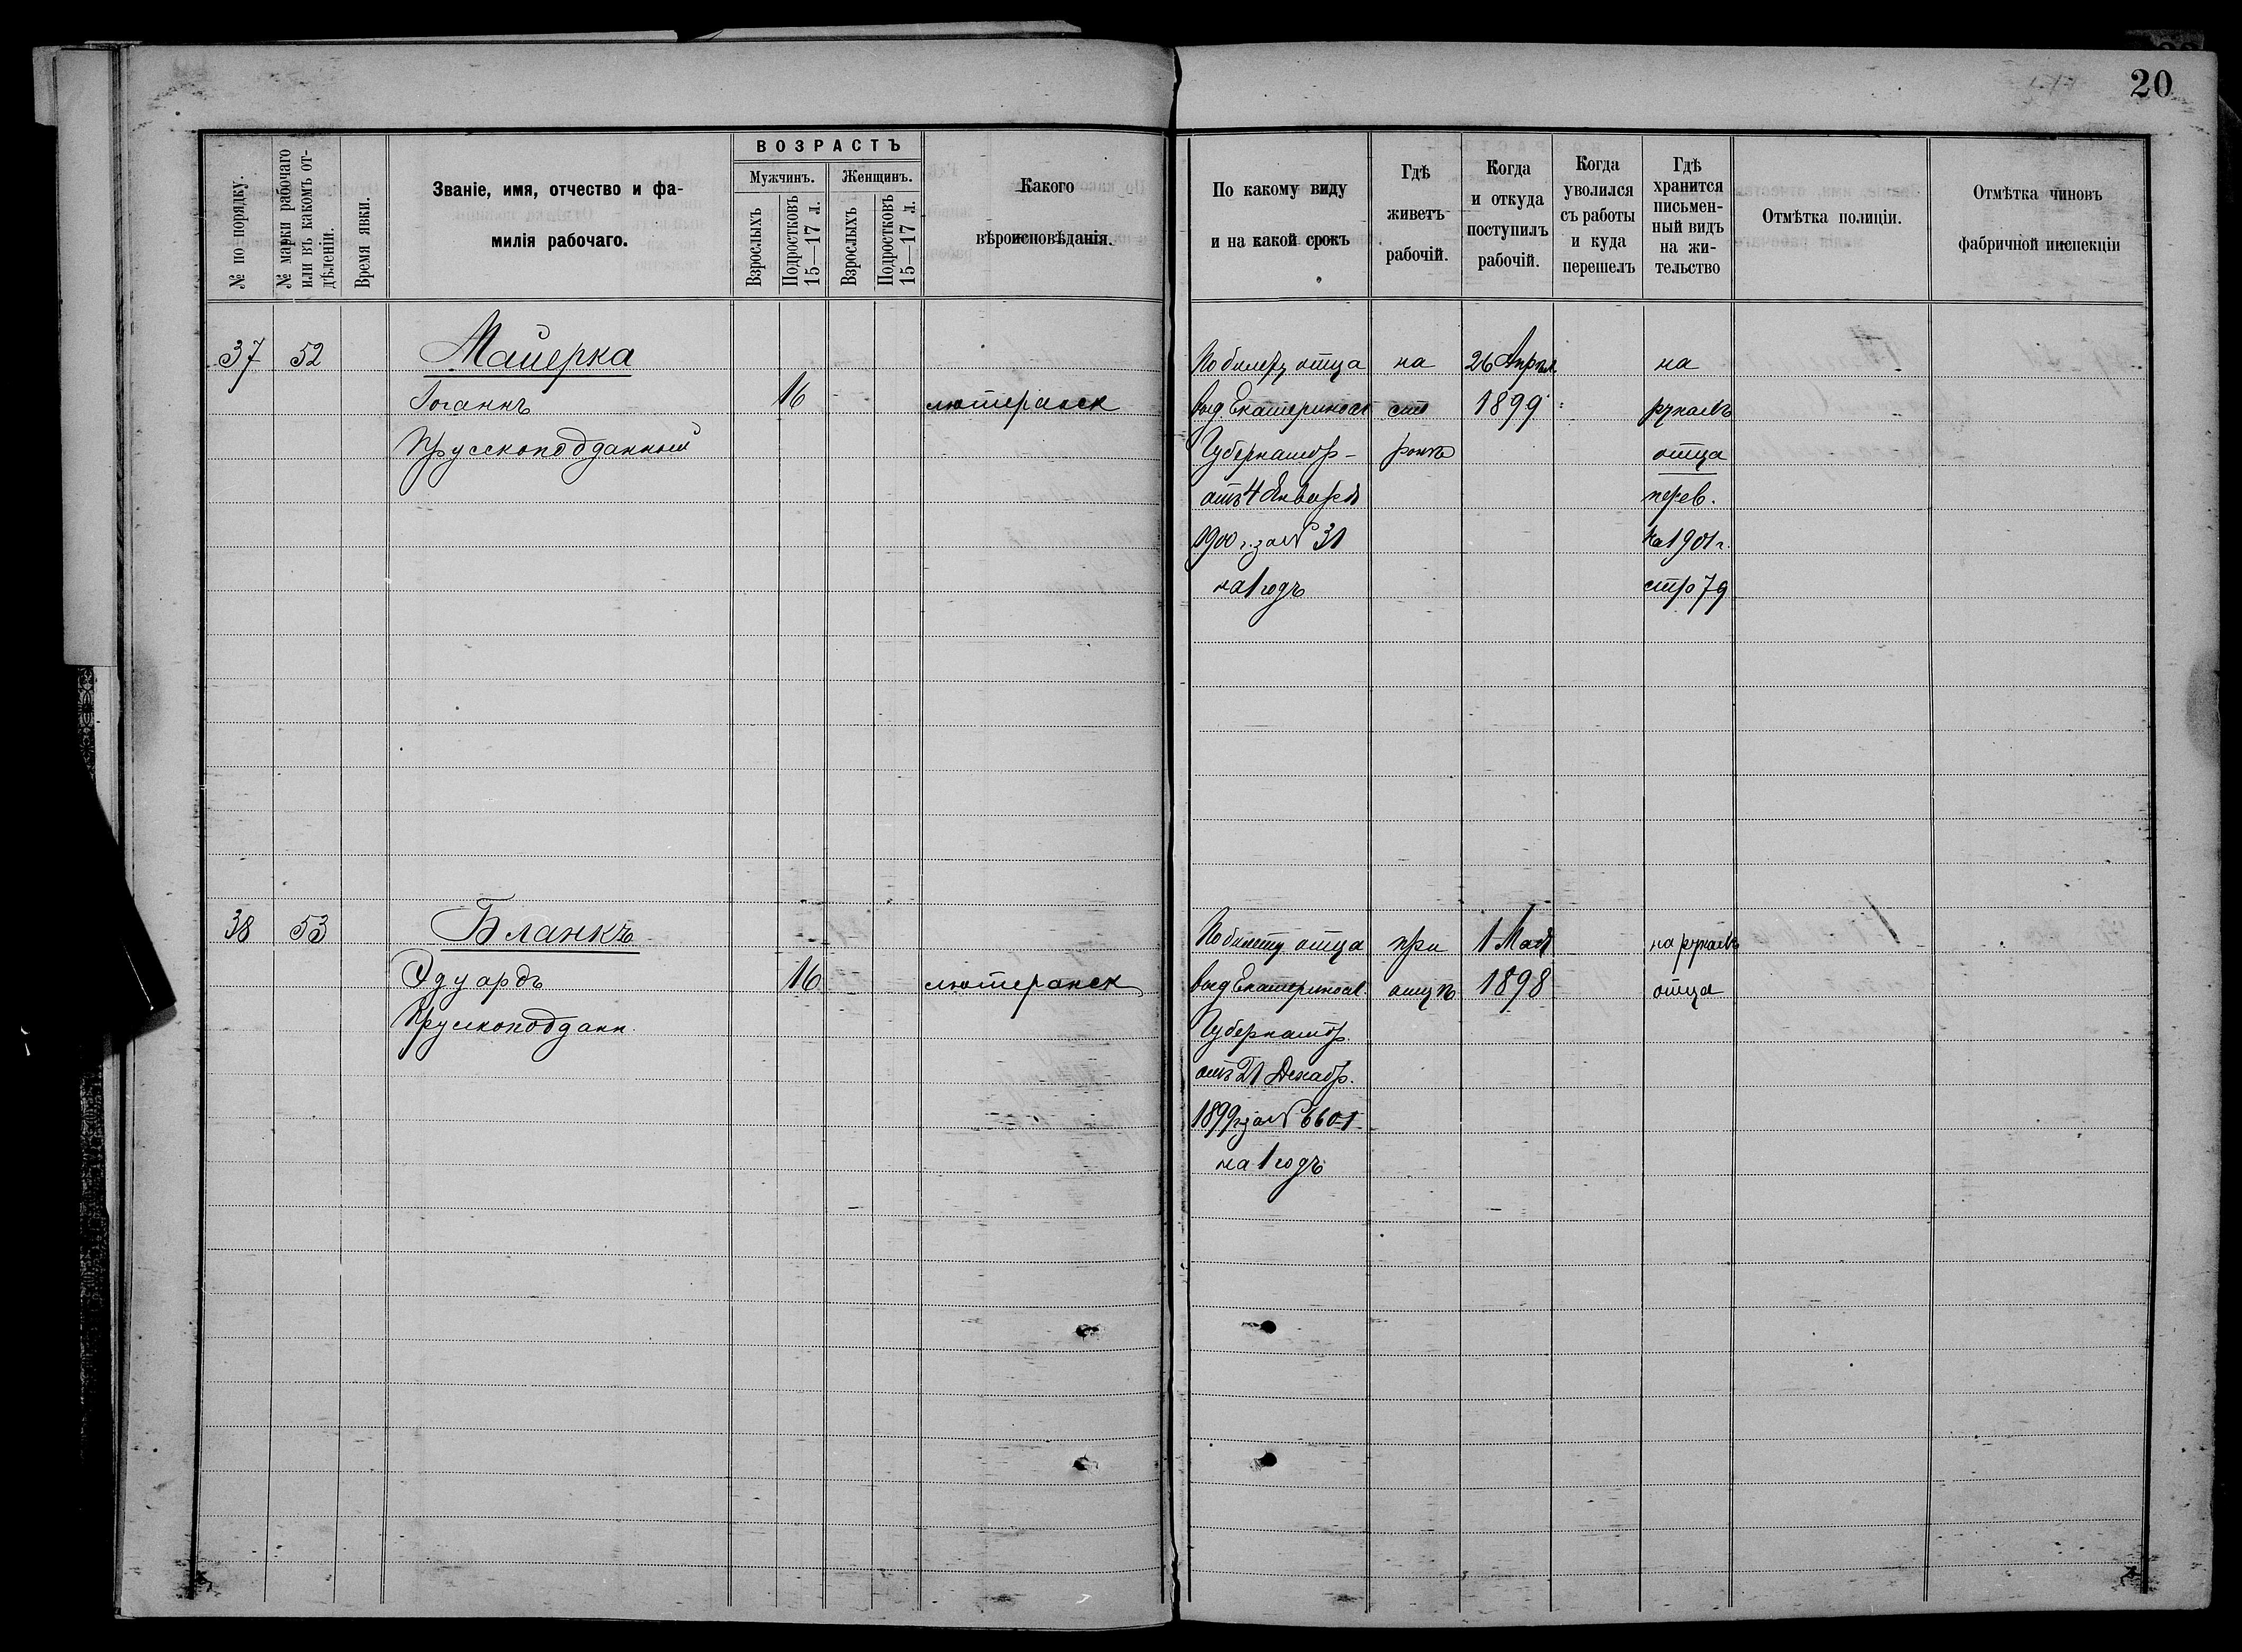 20
№ по порядку.
№ марки рабочаго
или въ какомъ от-
дѣленіи.
Время явки.
Званіе, имя, отчество и фа-
милія рабочаго.
ВОЗРАСТЪ
Мужчинъ.
Женщинъ.
Взрослыхъ
Подростковъ
15—17 л.
Взрослыхъ
Подростковъ
15—17 л.
Какого
вѣроисповѣданія.
По какому виду
и на какой срокъ
Гдѣ
живетъ
рабочій.
Когда
и откуда
поступилъ
рабочій.
Когда
уволился
съ работы
и куда
перешелъ
Гдѣ
хранится
письмен-
ный видъ
на жи-
тельство
Отмѣтка полиціи.
Отмѣтка чиновъ
фабричной инспекціи
37 52 Майерка
Іоганнъ 16 лютеранск
Прусскоподданный
По билету отца
выд Екатериносл
Губернатор-
отъ 4 Января
1900 г. за № 31
на 1 годъ
на
сто
ронѣ
26 Апрѣл.
1899
на
рукахъ
отца
перев.
на 1901 г.
стр 79
38 53 Бланкъ
Эдуардъ 16 лютеранск
Прусскоподдан.
По билету отца
выд Екатериносл.
Губернатор.
отъ 21 Декабр.
1899 г за № 6601
на 1 годъ
при
отцѣ
1 Мая
1898
на рукахъ
отца